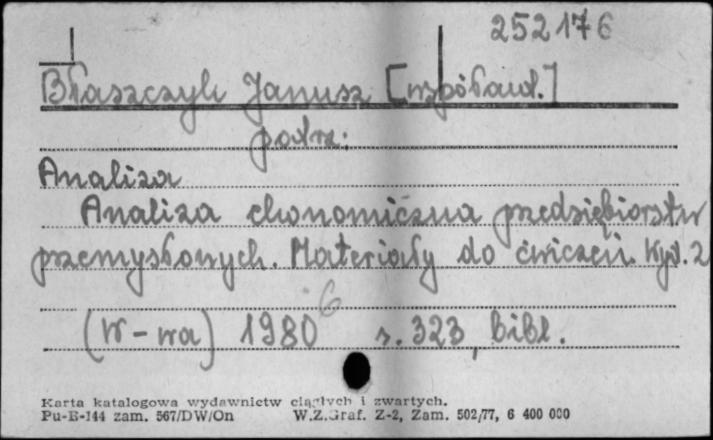 252176
Błaszczyk Janusz [współaut.]
podrz:
Analiza
Analiza ekonomiczna przedsiębiorstw
przemysłowych. Materiały do ćwiczeń. Wyd. 2
6
(W-wa) 1980 s. 323, bibl.
Karta katalogowa wydawnictw ciągłych i zwartych.
Pu-B-144 zam. 567/DW/On W.Z.Graf. Z-2, Zam. 502/77, 6 400 000